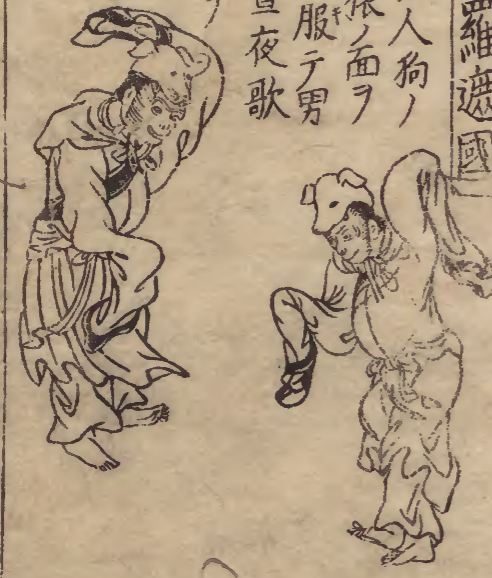 羅遮國
人狗ノ
ノ面ヲ
服テ男
夜歌